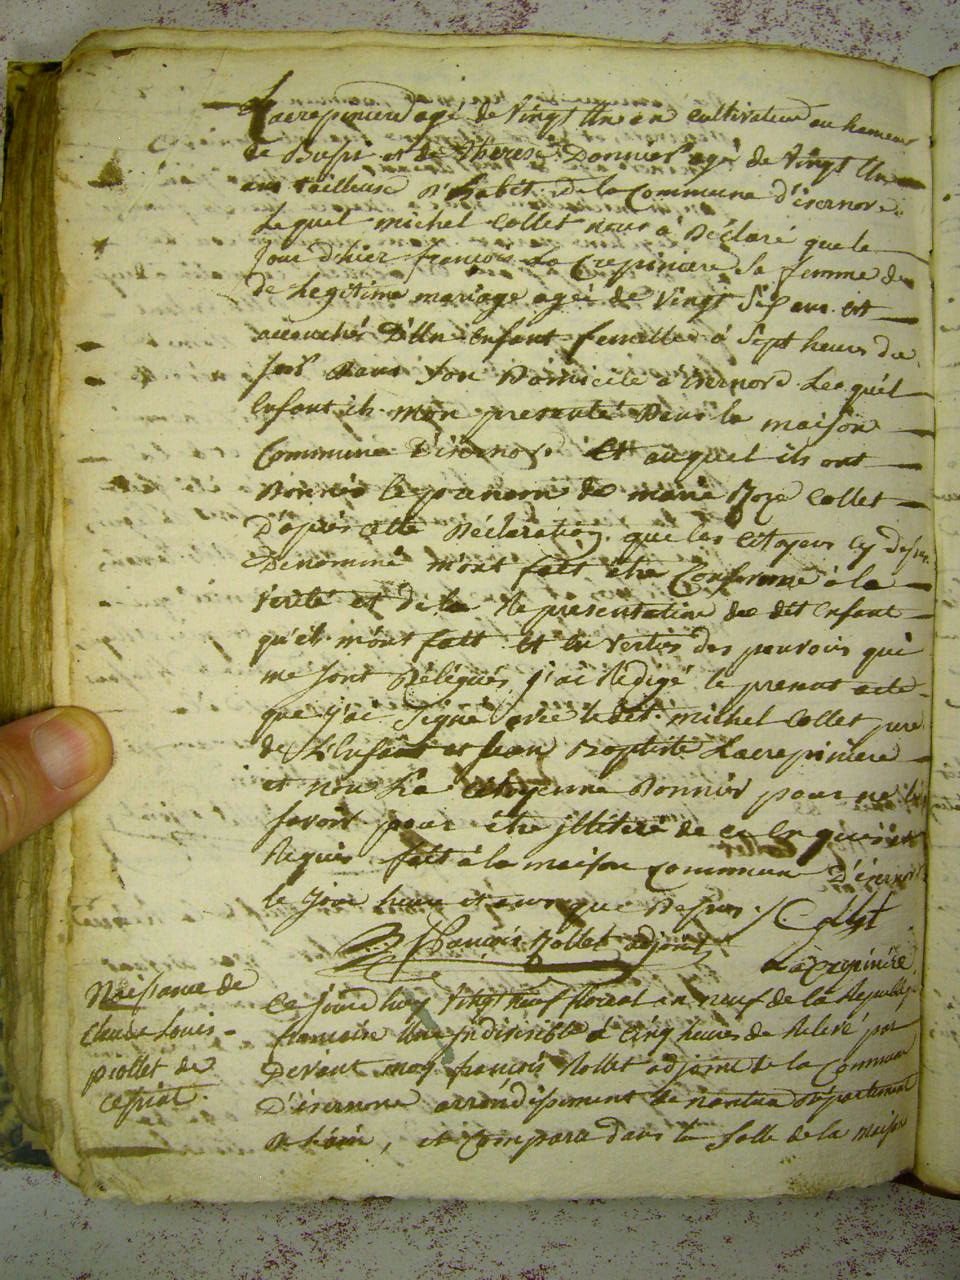 Lacrepiniere agé de Vingt Un an cultivateur au hameau
de Bussi et de Therese Donnier agé de Vingt Un
ans tailleuse d'habit de la Commune d'isernore
Lequel michel Collet nous a Déclaré que le
Jour d'hier françoise La Crepiniere Sa femme de
de Legitime mariage ageé de Vingt Six ans est
accouchés D'Un enfant femelle a Sept heures du
Soir dans Son Domicile a isernore Lequel
Enfant ils mon presenté Dans la maison
Commune D'isernore Et auquel ils ont
Donnés le prenom de marie Roze Collet
D'apres cette Déclaration que les Citoyens Cy dessus
Denommé m'ont fait être Conforme à la
Verité et de la Representation du dit Enfant
qu'ils m'ont fait et en Vertus des pouvoirs qui
me Sont Délégués j'ai Redigé le present acte
que j'ai Signé avec le dit michel Collet pere
de L'Enfant et Jean Baptiste Lacrepiniere
et non La Citoyenne Donnier pour ne le
Savoir pour être illiteré de ce Enquis et
Requis fait à la maison Commune D'isernore
le Jour heure et an que Dessus Collet
François Rollet adjoint
Lacrepiniere
Naissance de
Claude Louis
piollet de
Cessiat
Ce jourd'huy Vingt neuf floreal an neuf de la Republique
francaise Une Indivisible à Cinq heures de Relevé par
Devant moy françois Rollet adjoint de la Commune
D'isernore arrondissement de nantua département
de L'ain, et Comparu dans la Salle de la maison